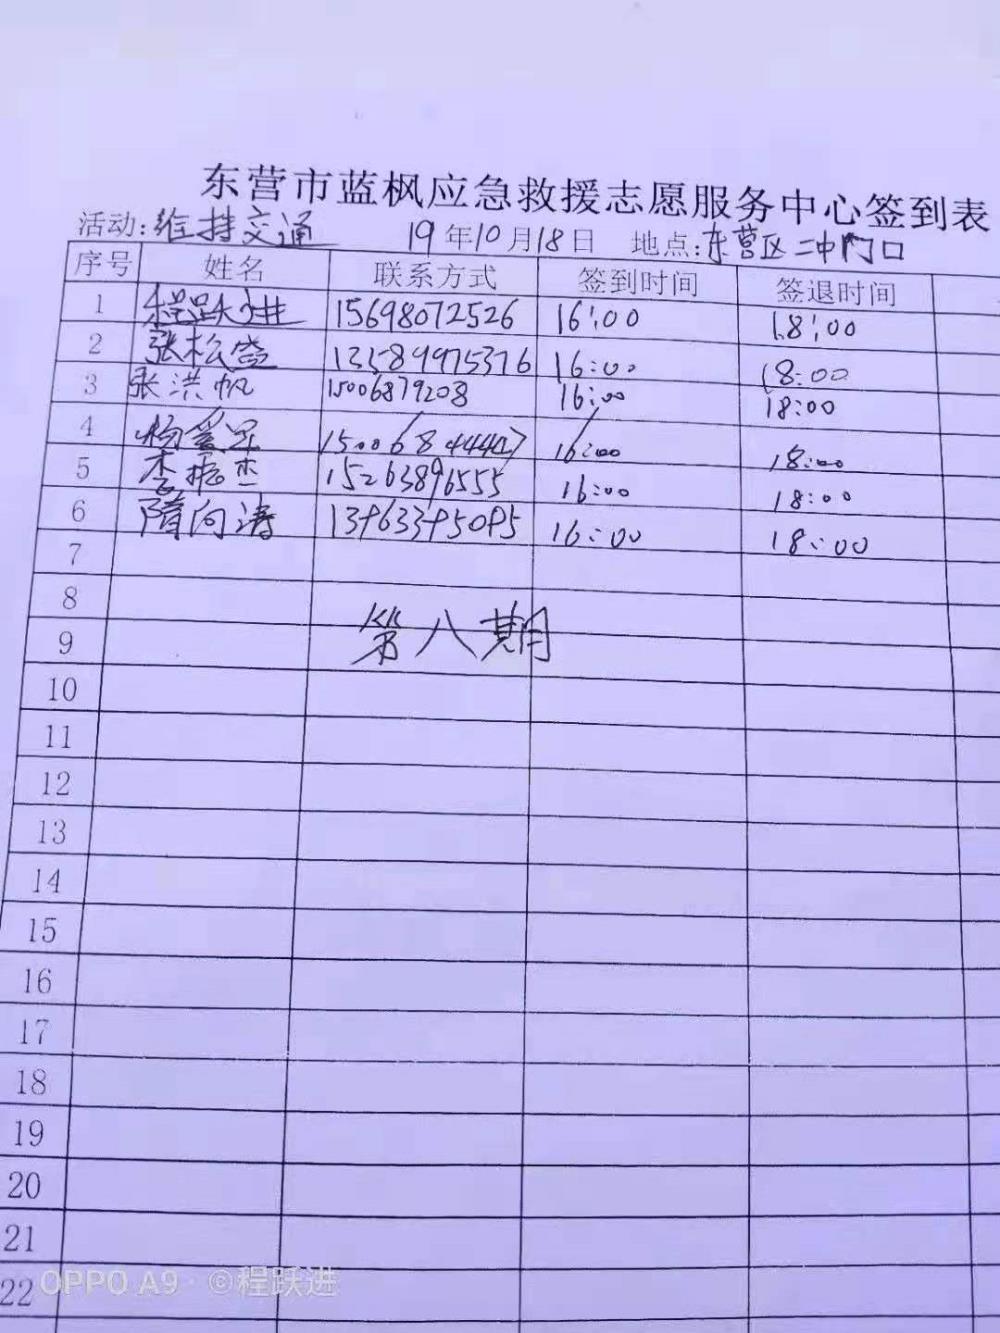 东营市蓝枫应急救援志愿服务中心签到表
活动:维持交通 19年10月18日 地点:东营区二中门口
序号 姓名 联系方式 签到时间 签退时间
1 程跃进 15698072526 16:00 18:00
2 张松盛 13589975376 16:00 18:00
3 张洪帆 15006879208 16:00 18:00
4 杨爱 16:00 18:00
5 李振杰 15263896555 16:00 18:00
6 隋向涛 16:00 18:00
7
8
第八期
9
10
11
12
13
14
15
16
17
18
19
20
21
22
OPPO A9 · ©程跃进